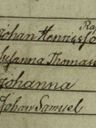 Johan Henrics
Susanna Thomas
Johanna
Johan Samuel